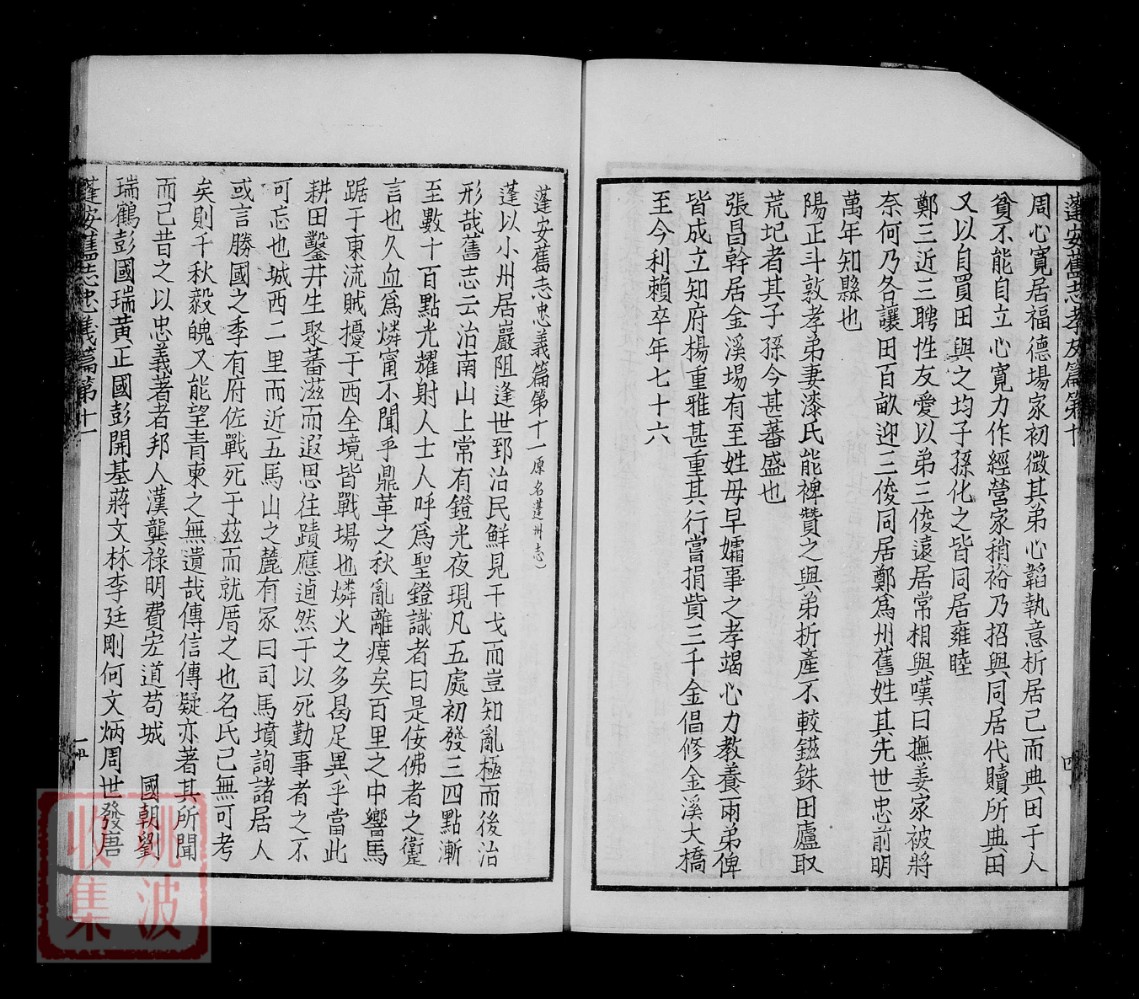 蓬安舊志孝友篇第十
周心寬居福德場家初微其弟心韜執意析居已而典田于人
貧不能自立心寬力作經營家稍裕乃招與同居代贖所典田
又以自買田與之均子孫化之皆同居雍睦
鄭三近三聘性友愛以弟三俊遠居常相與嘆曰撫姜家被將
奈何乃各讓田百畝迎三俊同居鄭爲州舊姓其先世忠前明
萬年知縣也
陽正斗敦孝弟妻漆氏能裨贊之與弟折產不較鎡銖田廬取
荒圮者其子孫今甚蕃盛也
張昌幹居金溪場有至姓母早孀事之孝竭心力教養兩弟俾
皆成立知府楊重雅甚重其行嘗捐貲三千金倡修金溪大橋
至今利賴卒年七十六
四
蓬安舊志忠義篇第十一原名蓬州志)
蓬以小州居巖阻逢世郅治民鮮見干戈而豈知亂極而後治
形哉舊志云治南山上常有鐙光夜現凡五處初發三四點漸
至數十百點光耀射人士人呼爲聖鐙識者曰是佞佛者之躗
言也久血爲燐甯不聞乎鼎革之秋亂離瘼矣百里之中響馬
踞于東流賊擾于西全境皆戰場也燐火之多曷足異乎當此
耕田鑿井生聚蕃滋而遐思往蹟應逌然于以死勤事者之不
可忘也城西二里而近五馬山之麓有冢曰司馬墳詢諸居人
或言勝國之季有府佐戰死于茲而就厝之也名氏已無可考
矣則千秋毅魄又能望青柬之無遺哉傳信傳疑亦著其所聞
而已昔之以忠義著者邦人漢龔祿明費宏道苟城　國朝劉
瑞鶴彭國瑞黃正國彭開基蔣文林李廷剛何文炳周世發唐
蓬安舊志忠義篇第十一
一
姚波
收集